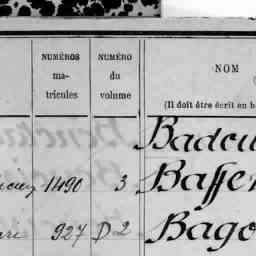 NUMÉROS
ma-
tricules
NUMÉRO
du
volume
NOM
(Il doit être écrit en b
Badou
1490 3 Baffer
927 D2 Bago